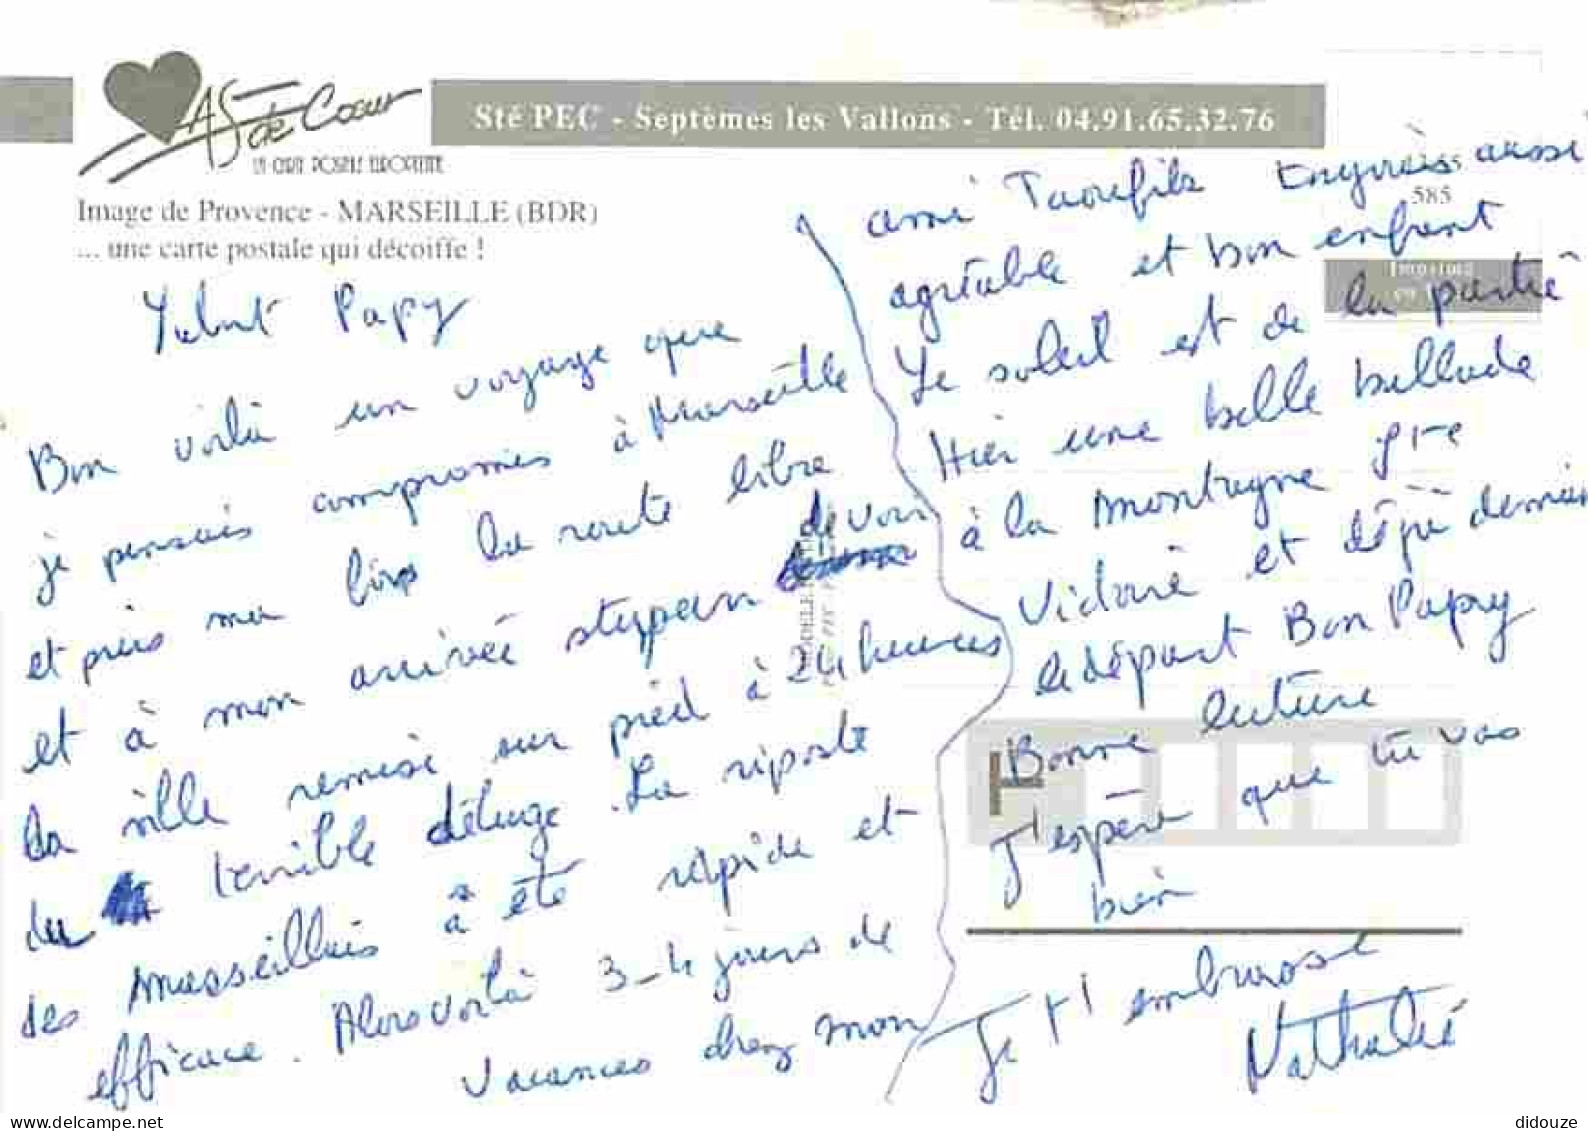 AS de Cœur
Sté PEC - Septèmes les Vallons - Tél. 04.91.65.32.76
Image de Provence - MARSEILLE (BDR)
... une carte postale qui décoiffe !
585
Salut Papy
Bon voilà un voyage que
je pensais compromis à Marseille
et puis la route libre
et à mon arrivée devoir
la ville remise sur pied à 24 heures
du terrible déluge. La riposte
des Marseillais à été rapide et
efficace. Alors voilà 3-4 jours de
vacances chez mon
ami Taoufik toujours aussi
agréable et bon enfant
Le soleil est de la partie
Hier une belle ballade
à la montagne Ste
Victoire et déjà demain
le départ Bon Papy
Bonne lecture
J'espère que tu vas
bien
Je t'embrasse
Nathalie
delcampe.net
didouze